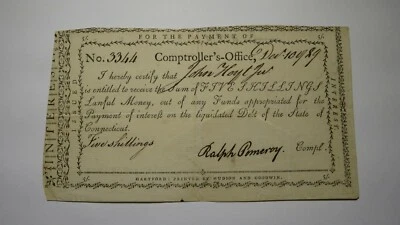 FOR THE PAYMENT OF
No. 3344 Comptroller's-Office, Decr 10 1789
I hereby certify that John Hoyt Jur
is entitled to receive the Sum of FIVE SHILLINGS
Lawful Money, out of any Funds appropriated for the
Payment of interest on the liquidated Debt of the State of
Connecticut.
Five shillings
Ralph Pomeroy. Compt.
HARTFORD: PRINTED BY HUDSON AND GOODWIN:
INTEREST
ISSUED